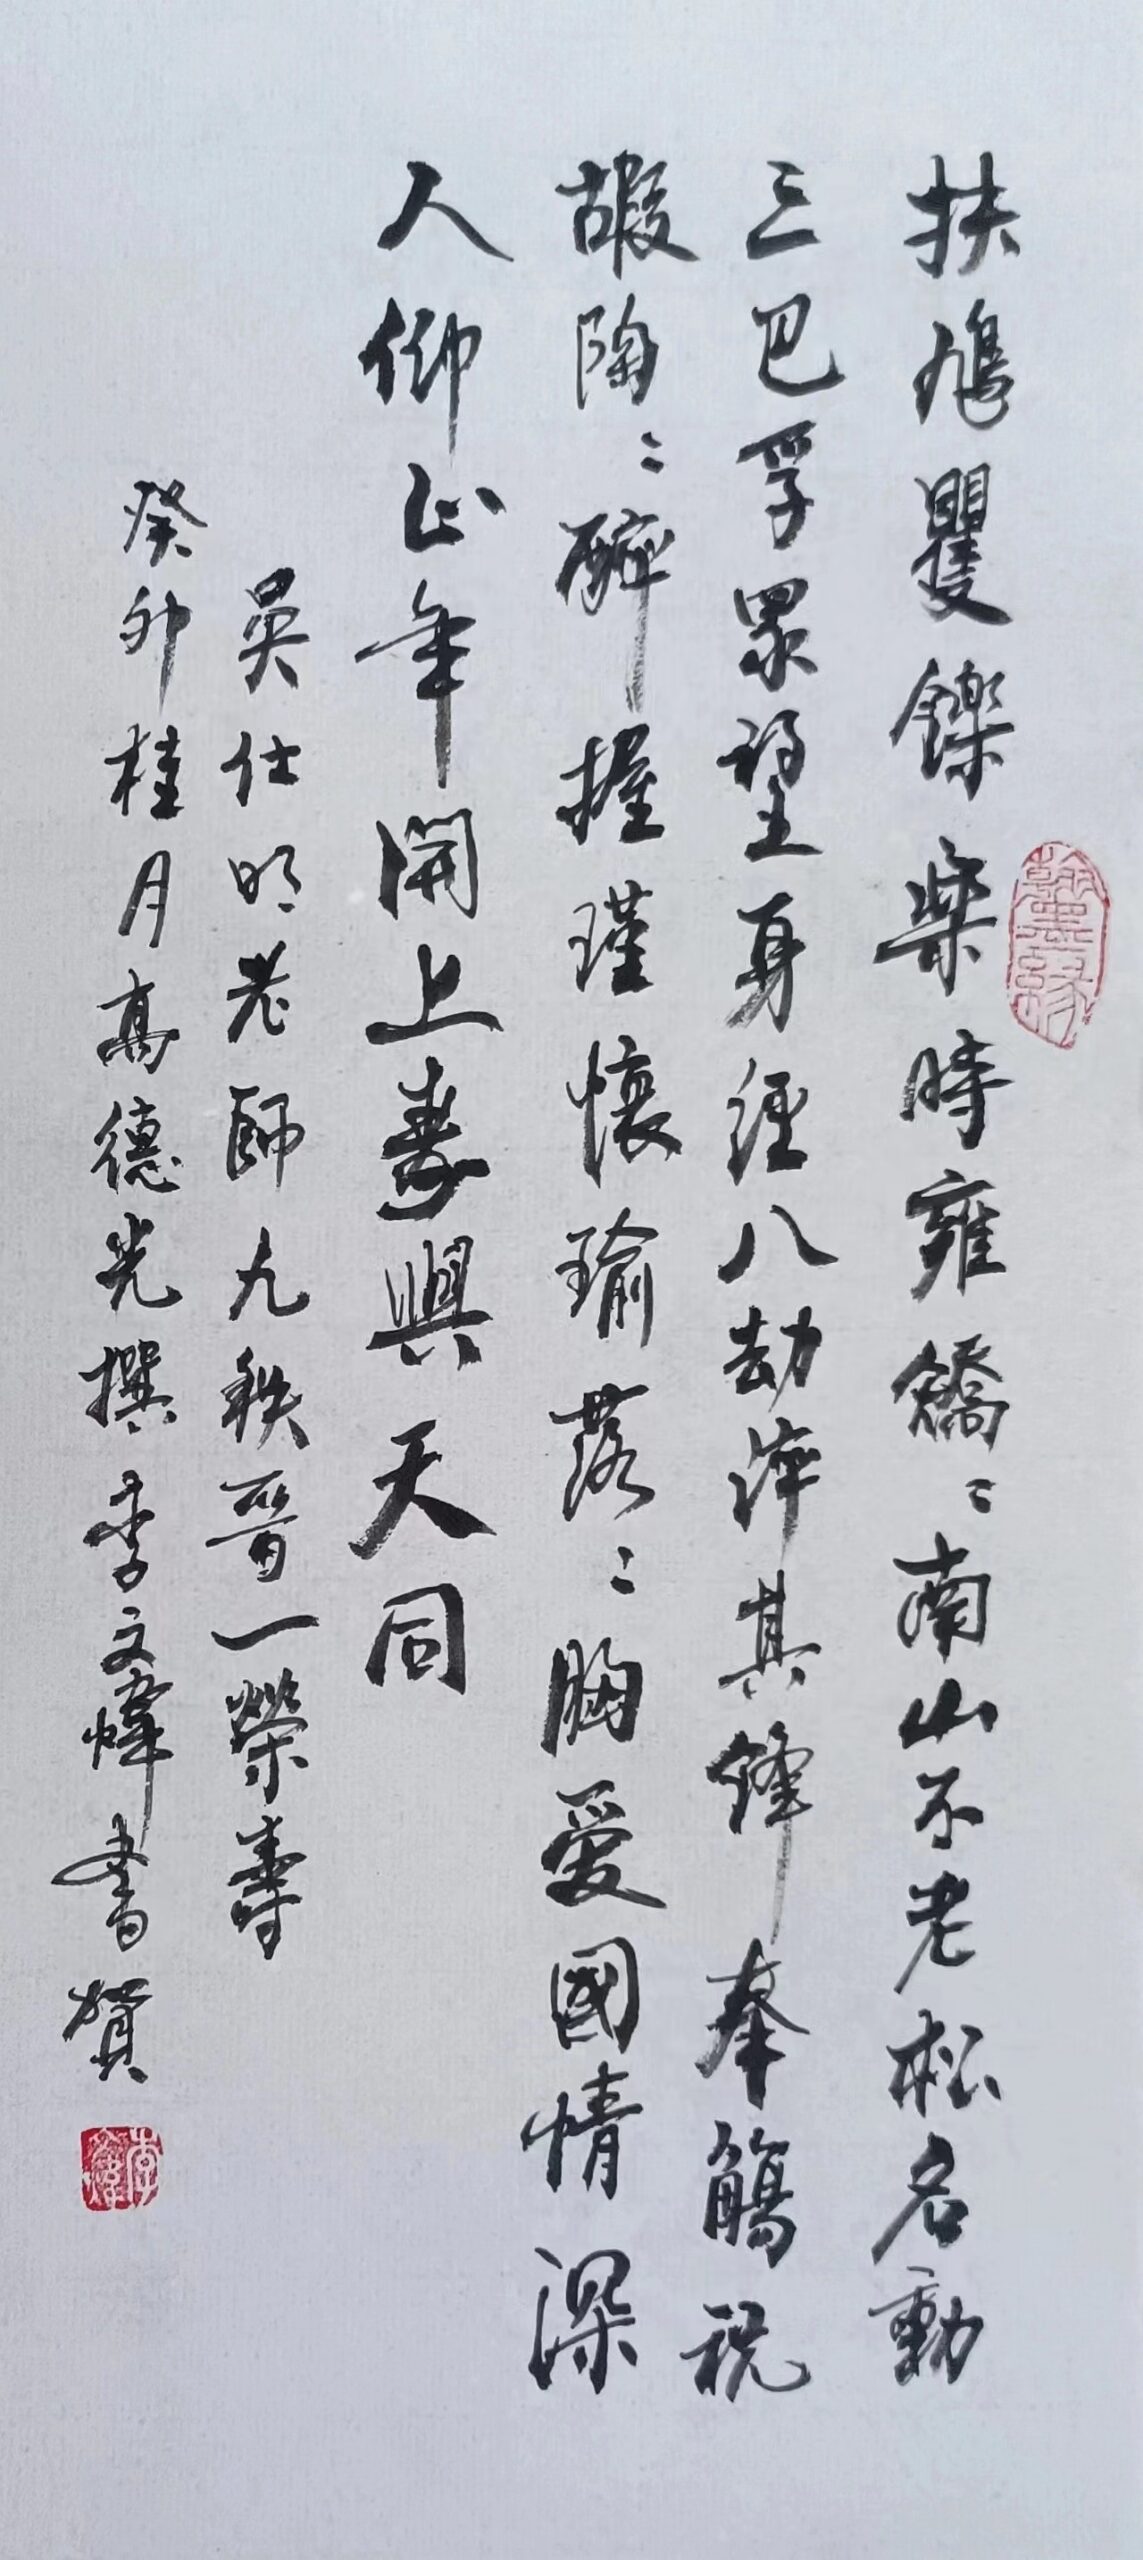 扶鳩矍鑠樂時雍矯〻南山不老松名動
三巴孚眾望身經八劫淬其鋒奉觴祝
嘏陶〻醉握瑾懷瑜落〻胸愛國情深
人仰止年開上壽與天同
吳仕明老師九秩晉一榮壽
癸卯桂月高德光撰李文煒書賀
翰墨緣